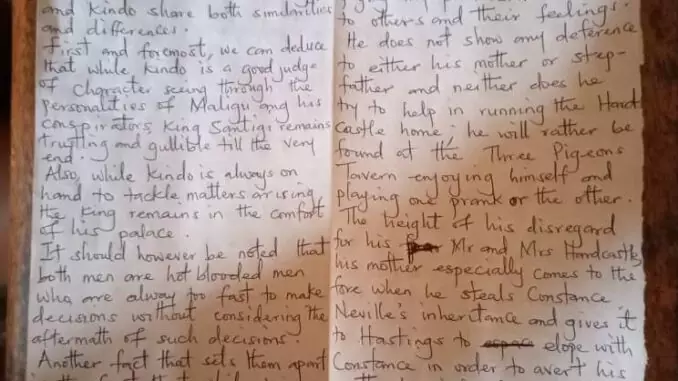 and Kindo share both similarities
and differences.
First and foremost, we can deduce
that while Kindo is a good judge
of character seeing through the
personalities of Maligu ang his
conspirators, King Santigi remains
trusting and gullible till the very
end.
Also, while Kindo is always on
hand to tackle matters arising
the King remains in the comfort
of his palace.
It should however be noted that
both men are hot blooded men
who are alway too fast to make
decisions without considering the
aftermath of such decisions.
Another fact that sets them apart
to others and their feelings.
He does not show any deference
to either his mother or step-
father and neither does he
try to help in running the Hard
Castle home; he will rather be
found at the Three Pigeons
Tavern enjoying himself and
playing one prank or the other.
The height of his disregard
for his Mr and Mrs Hardcastle
his mother especially comes to the
fore when he steals Constance
Neville's inheritance and gives it
to Hastings to elope with
Constance in order to avert his